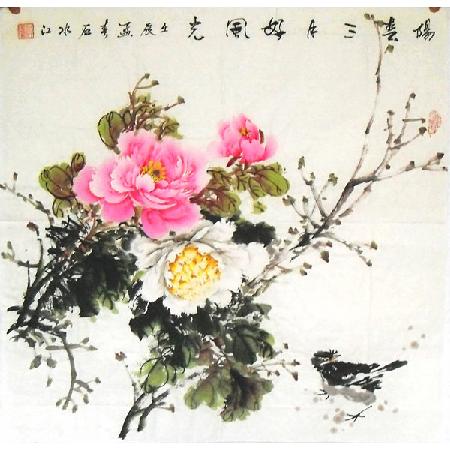 陽春三月好風光 壬辰孟春石